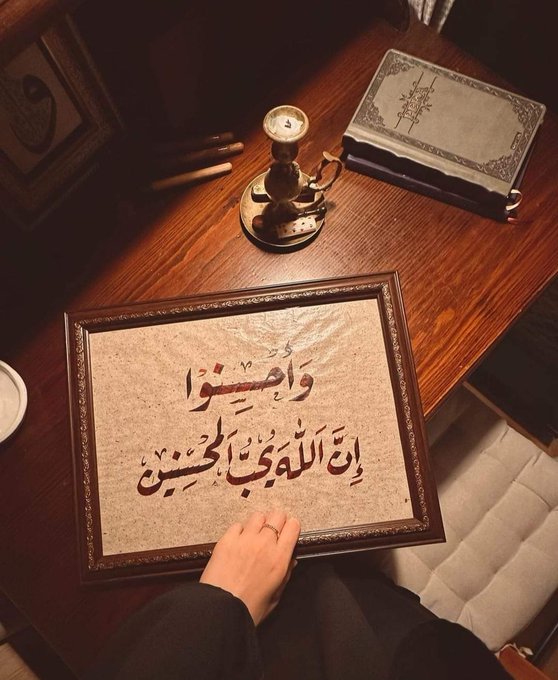 وَأَحْسِنُوا
إِنَّ اللَّهَ يُحِبُّ الْمُحْسِنِينَ